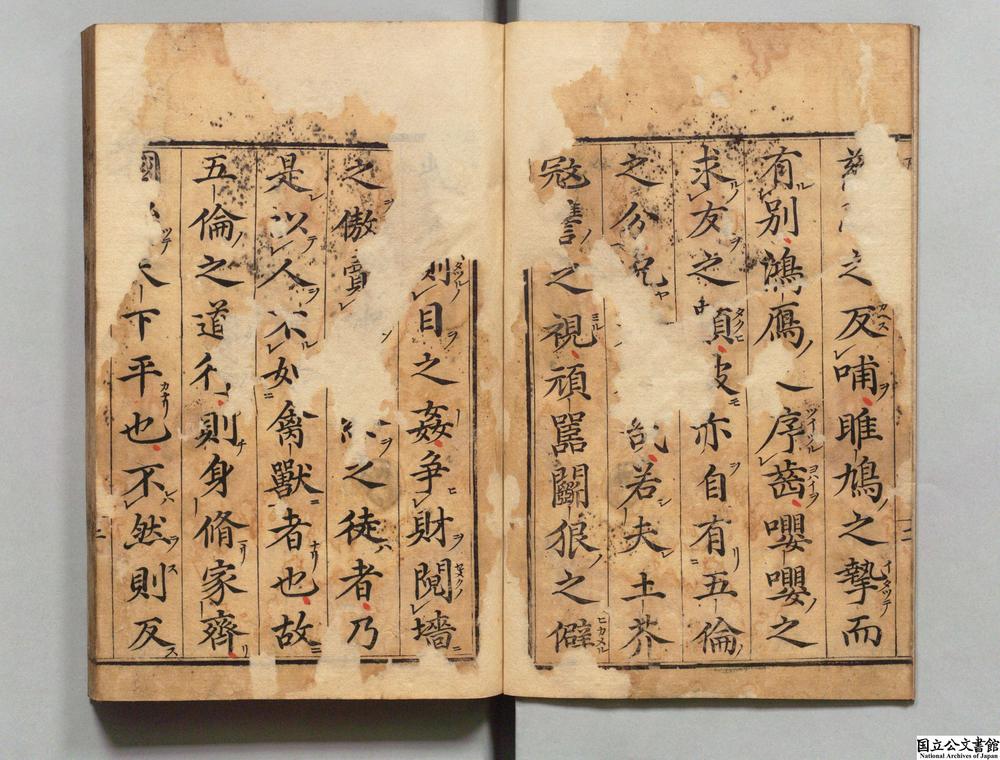 之反哺雎鳩之摯而
有別鴻鴈之序齒嚶嚶之
求友之類彼亦自有五倫
之分況哉若夫土芥
寇讎之視頑嚚鬪狠之僻
則目之姦爭財鬩墻
之傲之徒者乃
是以人不如禽獸者也故
五倫之道行則身脩家齊
國天下平也不然則反
国立公文書館
National Archives of Japan